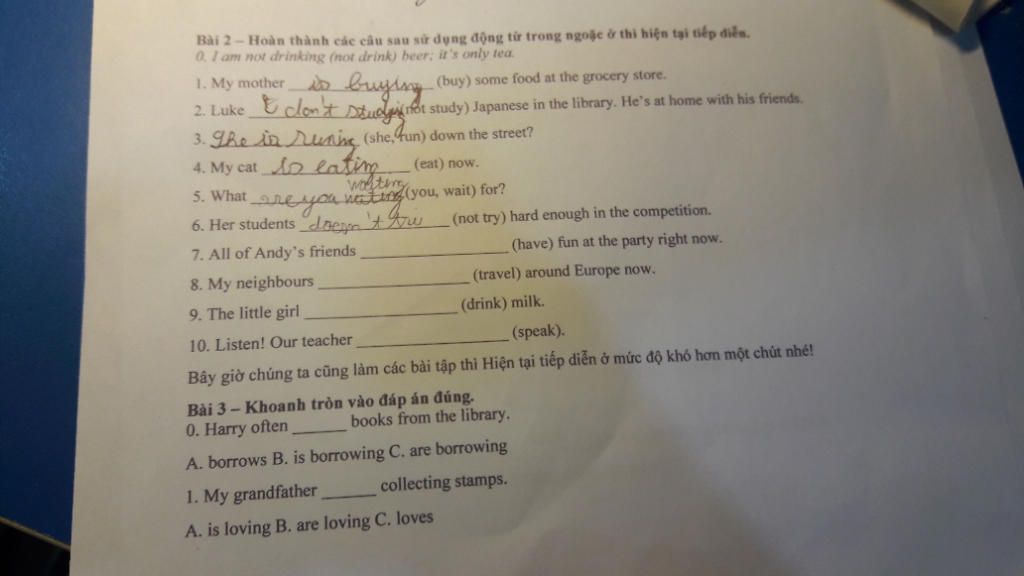 Bài 2 – Hoàn thành các câu sau sử dụng động từ trong ngoặc ở thì hiện tại tiếp diễn.
0. I am not drinking (not drink) beer; it's only tea.
1. My mother is buying (buy) some food at the grocery store.
2. Luke don't study (not study) Japanese in the library. He's at home with his friends.
3. She is runing (she, run) down the street?
4. My cat is eating (eat) now.
waiting
5. What are you (you, wait) for?
6. Her students doesn't trie (not try) hard enough in the competition.
7. All of Andy's friends ____________ (have) fun at the party right now.
8. My neighbours ____________ (travel) around Europe now.
9. The little girl ____________ (drink) milk.
10. Listen! Our teacher ____________ (speak).
Bây giờ chúng ta cũng làm các bài tập thì Hiện tại tiếp diễn ở mức độ khó hơn một chút nhé!
Bài 3 – Khoanh tròn vào đáp án đúng.
0. Harry often ______ books from the library.
A. borrows B. is borrowing C. are borrowing
1. My grandfather ______ collecting stamps.
A. is loving B. are loving C. loves